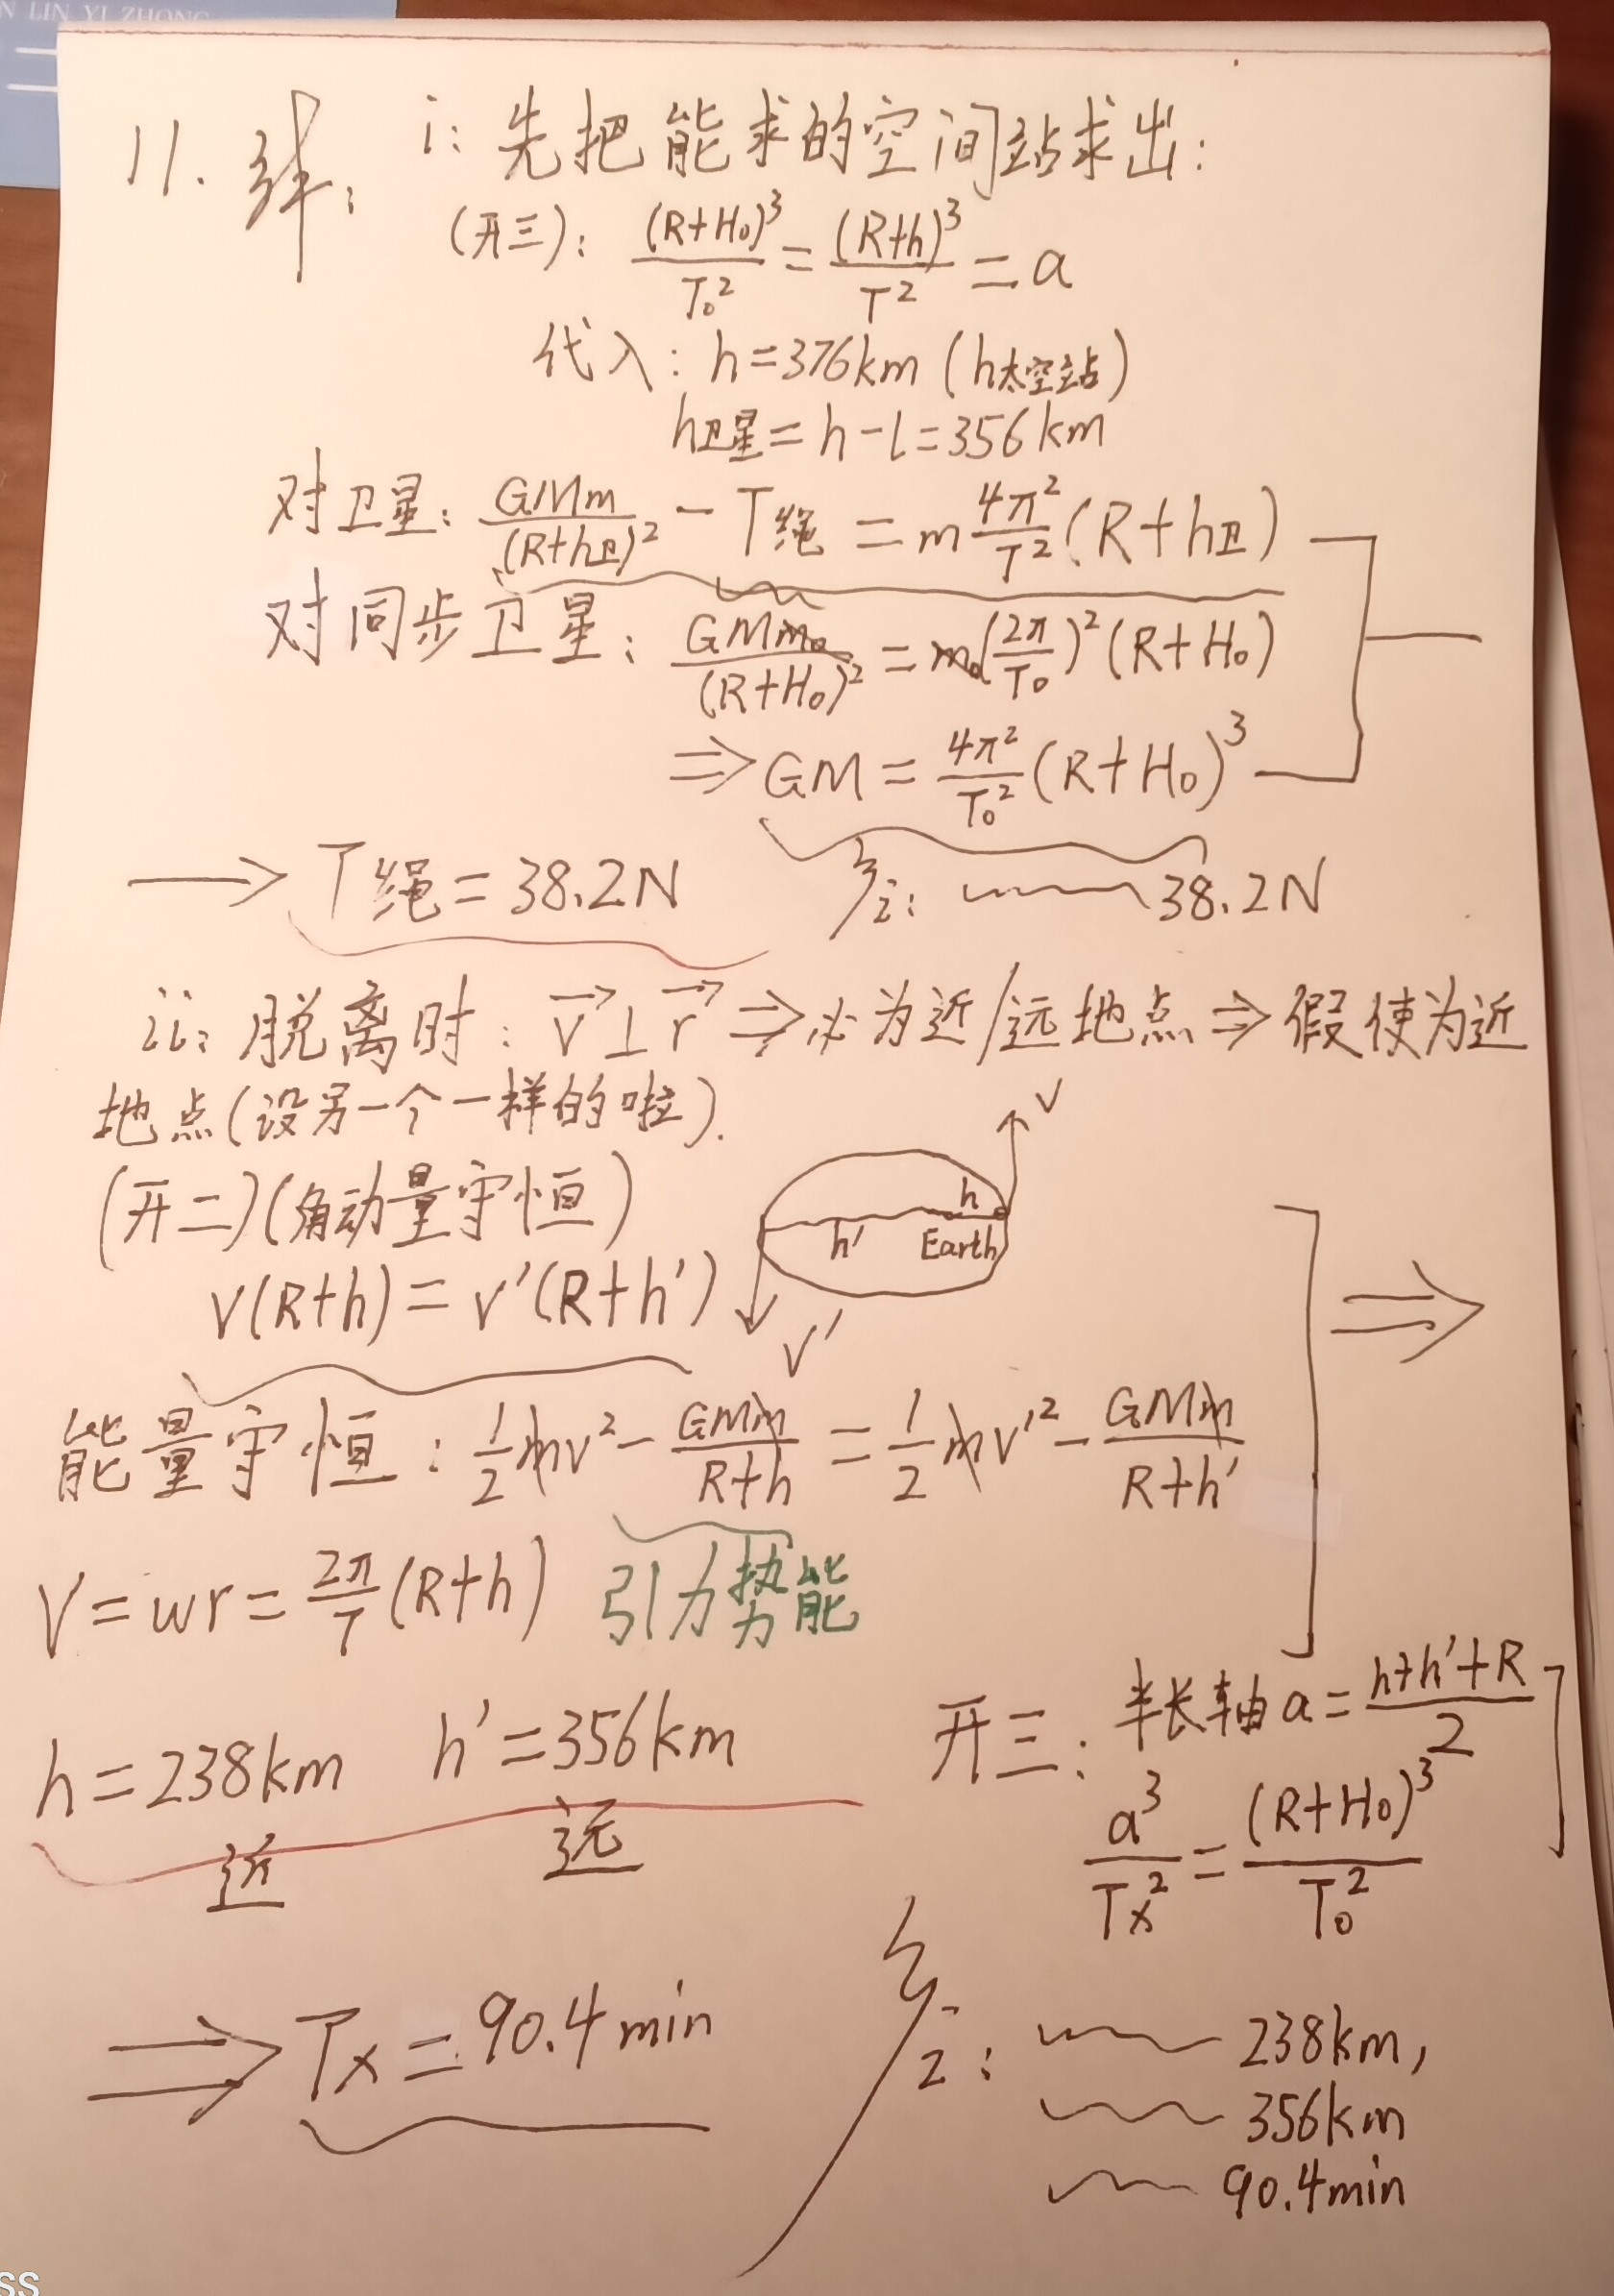 N LIN YI ZHONG
11. 解: i: 先把能求的空间站求出:
(开三): (R+H₀)³/T₀² = (R+h)³/T² = a
代入: h=376km (h太空站)
h卫星=h-l=356km
对卫星: GMm/(R+h卫)² - T绳 = m 4π²/T² (R+h卫)
对同步卫星: GMm₀/(R+H₀)² = m₀(2π/T₀)²(R+H₀)
⇒ GM = 4π²/T₀² (R+H₀)³
→ T绳=38.2N
i: 38.2N
ii: 脱离时: v⃗⊥r⃗ ⇒ 必为近/远地点 ⇒ 假使为近
地点(设另一个一样的啦).
(开二)(角动量守恒)
v
h
h' Earth
v(R+h)=v'(R+h')
v'
能量守恒: 1/2 mv² - GMm/(R+h) = 1/2 mv'² - GMm/(R+h')
V=wr=2π/T (R+h) 引力势能
⇒
h=238km h'=356km
近 远
开三: 半长轴a=(h+h'+R)/2
a³/Tx² = (R+H₀)³/T₀²
⇒ Tx=90.4min
2: 238km,
356km
90.4min
SS